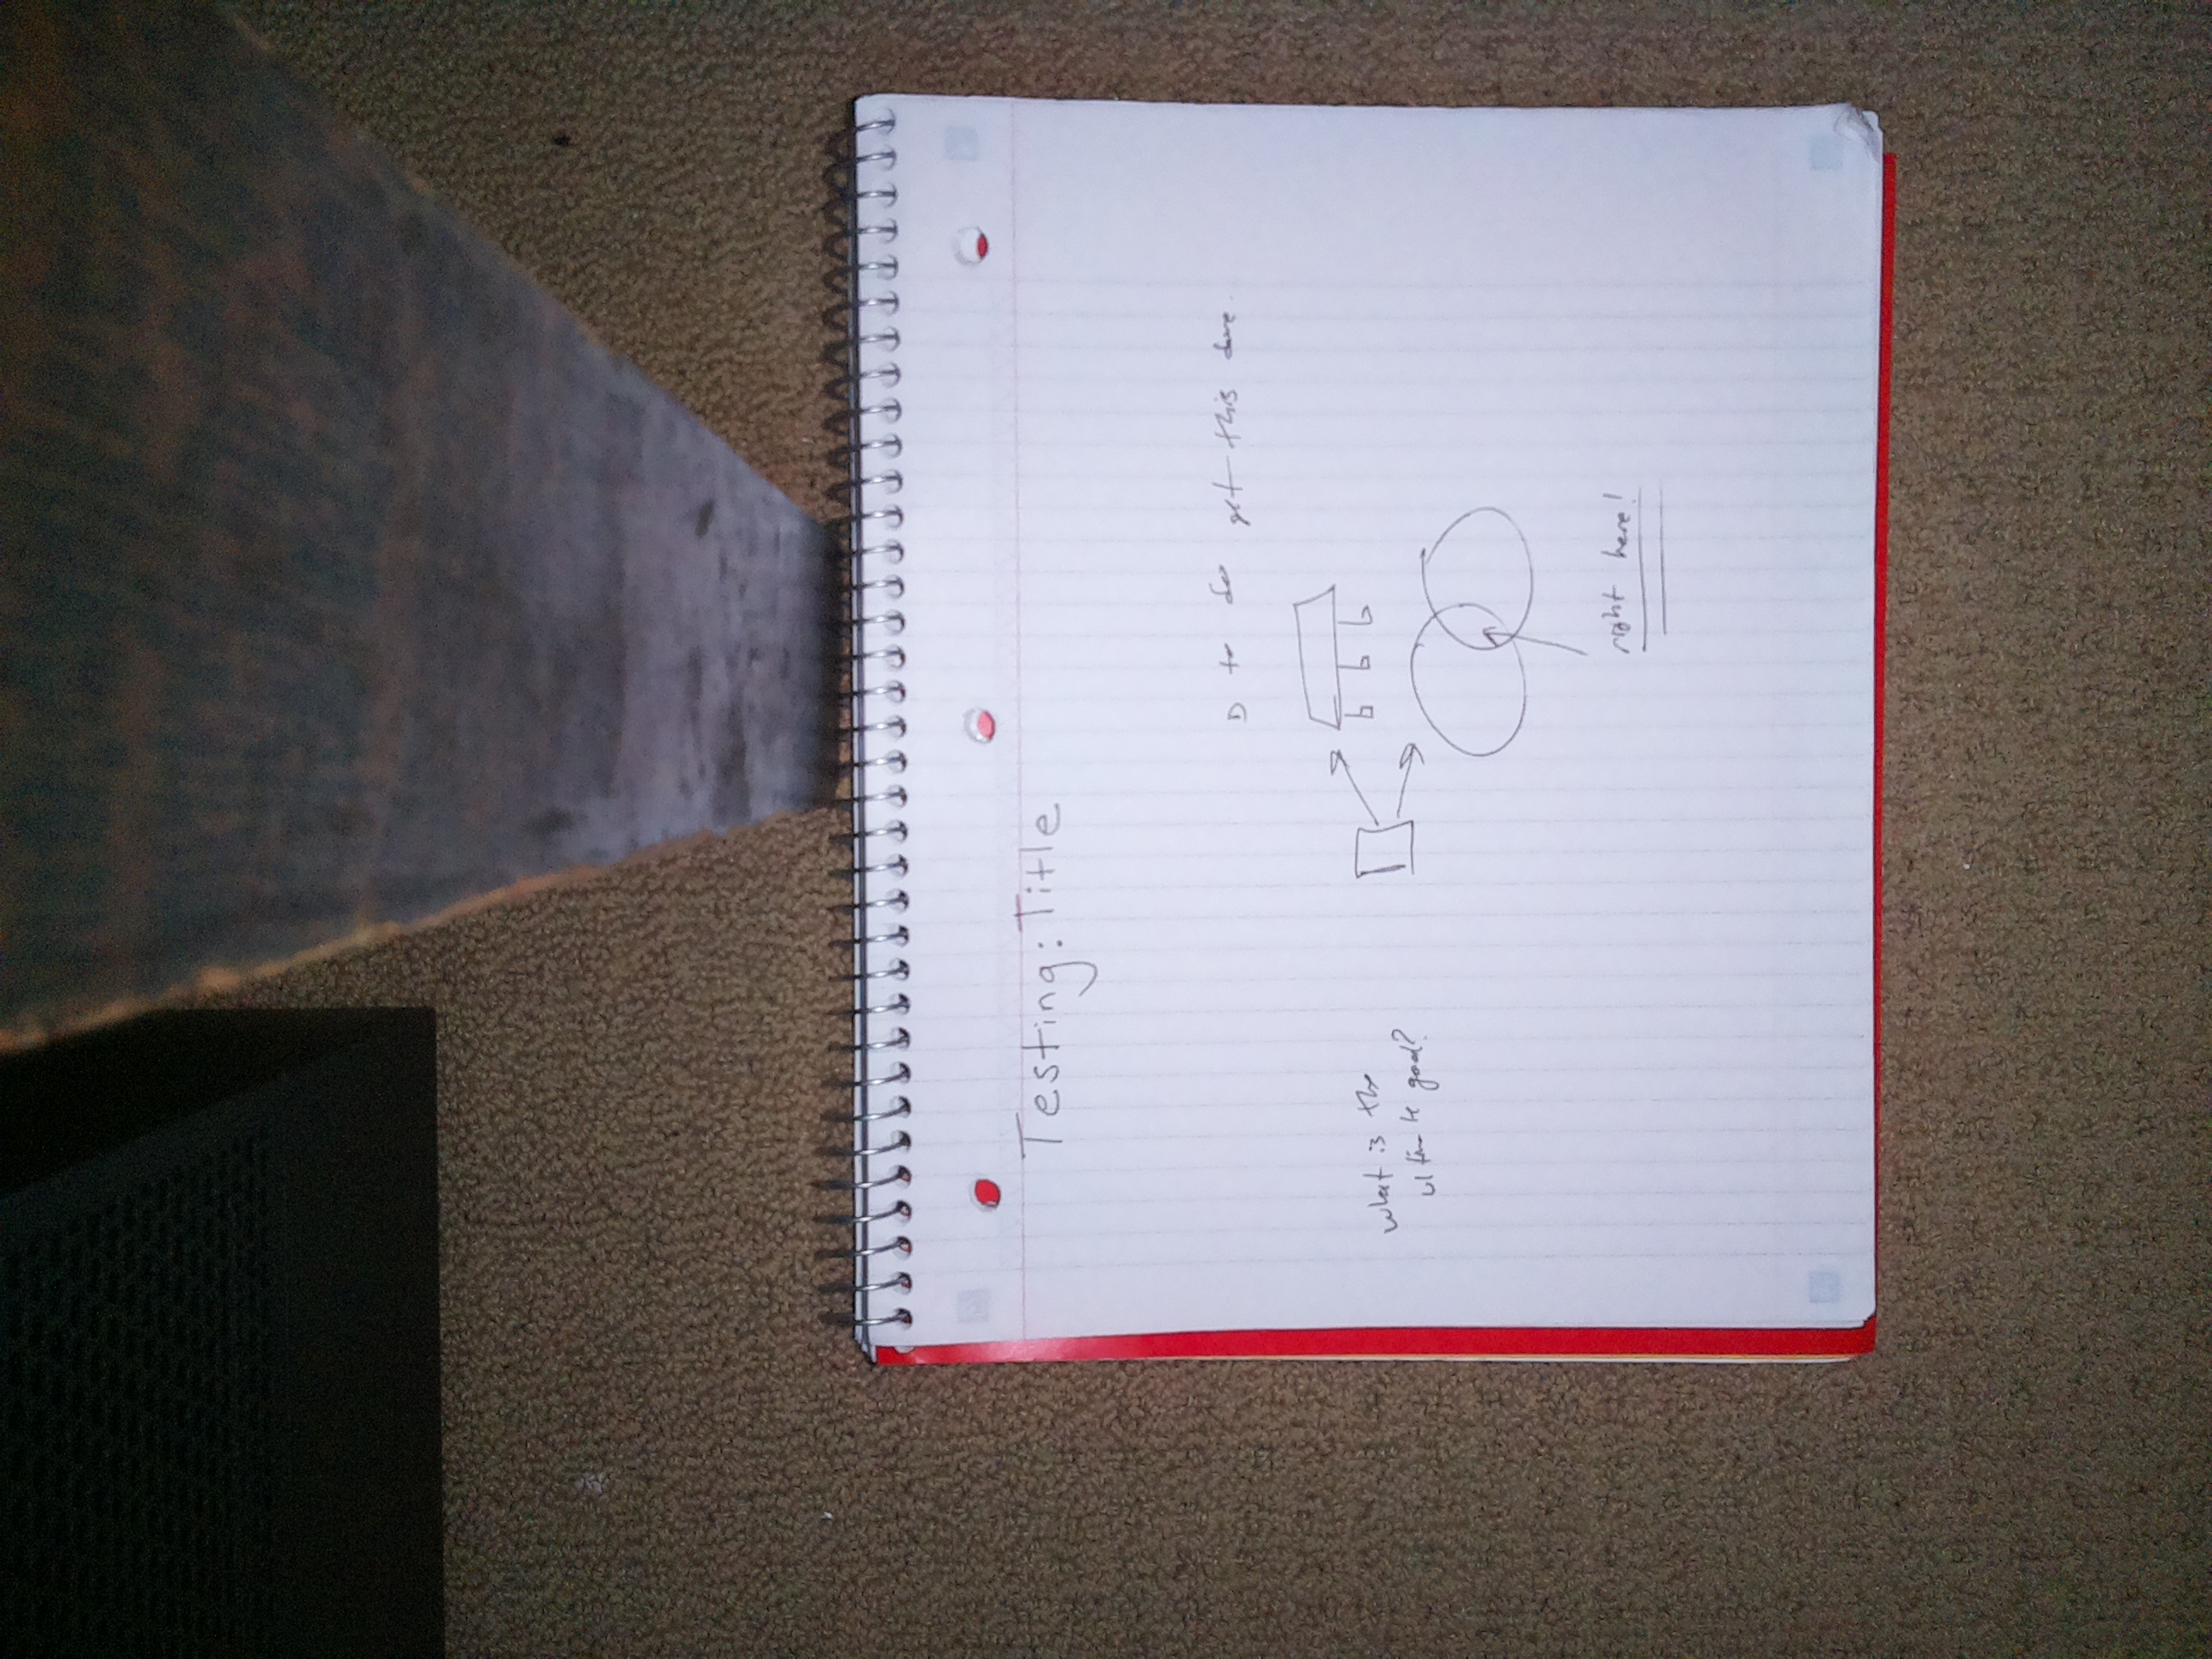 Testing: Title
D to do get this done.
b b b
what is the
ultimate good?
right here!